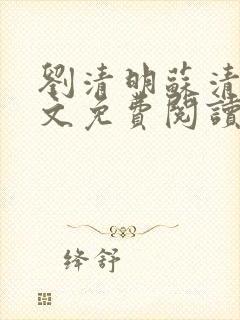 劉清明蘇清
文免費閱讀
绛舒